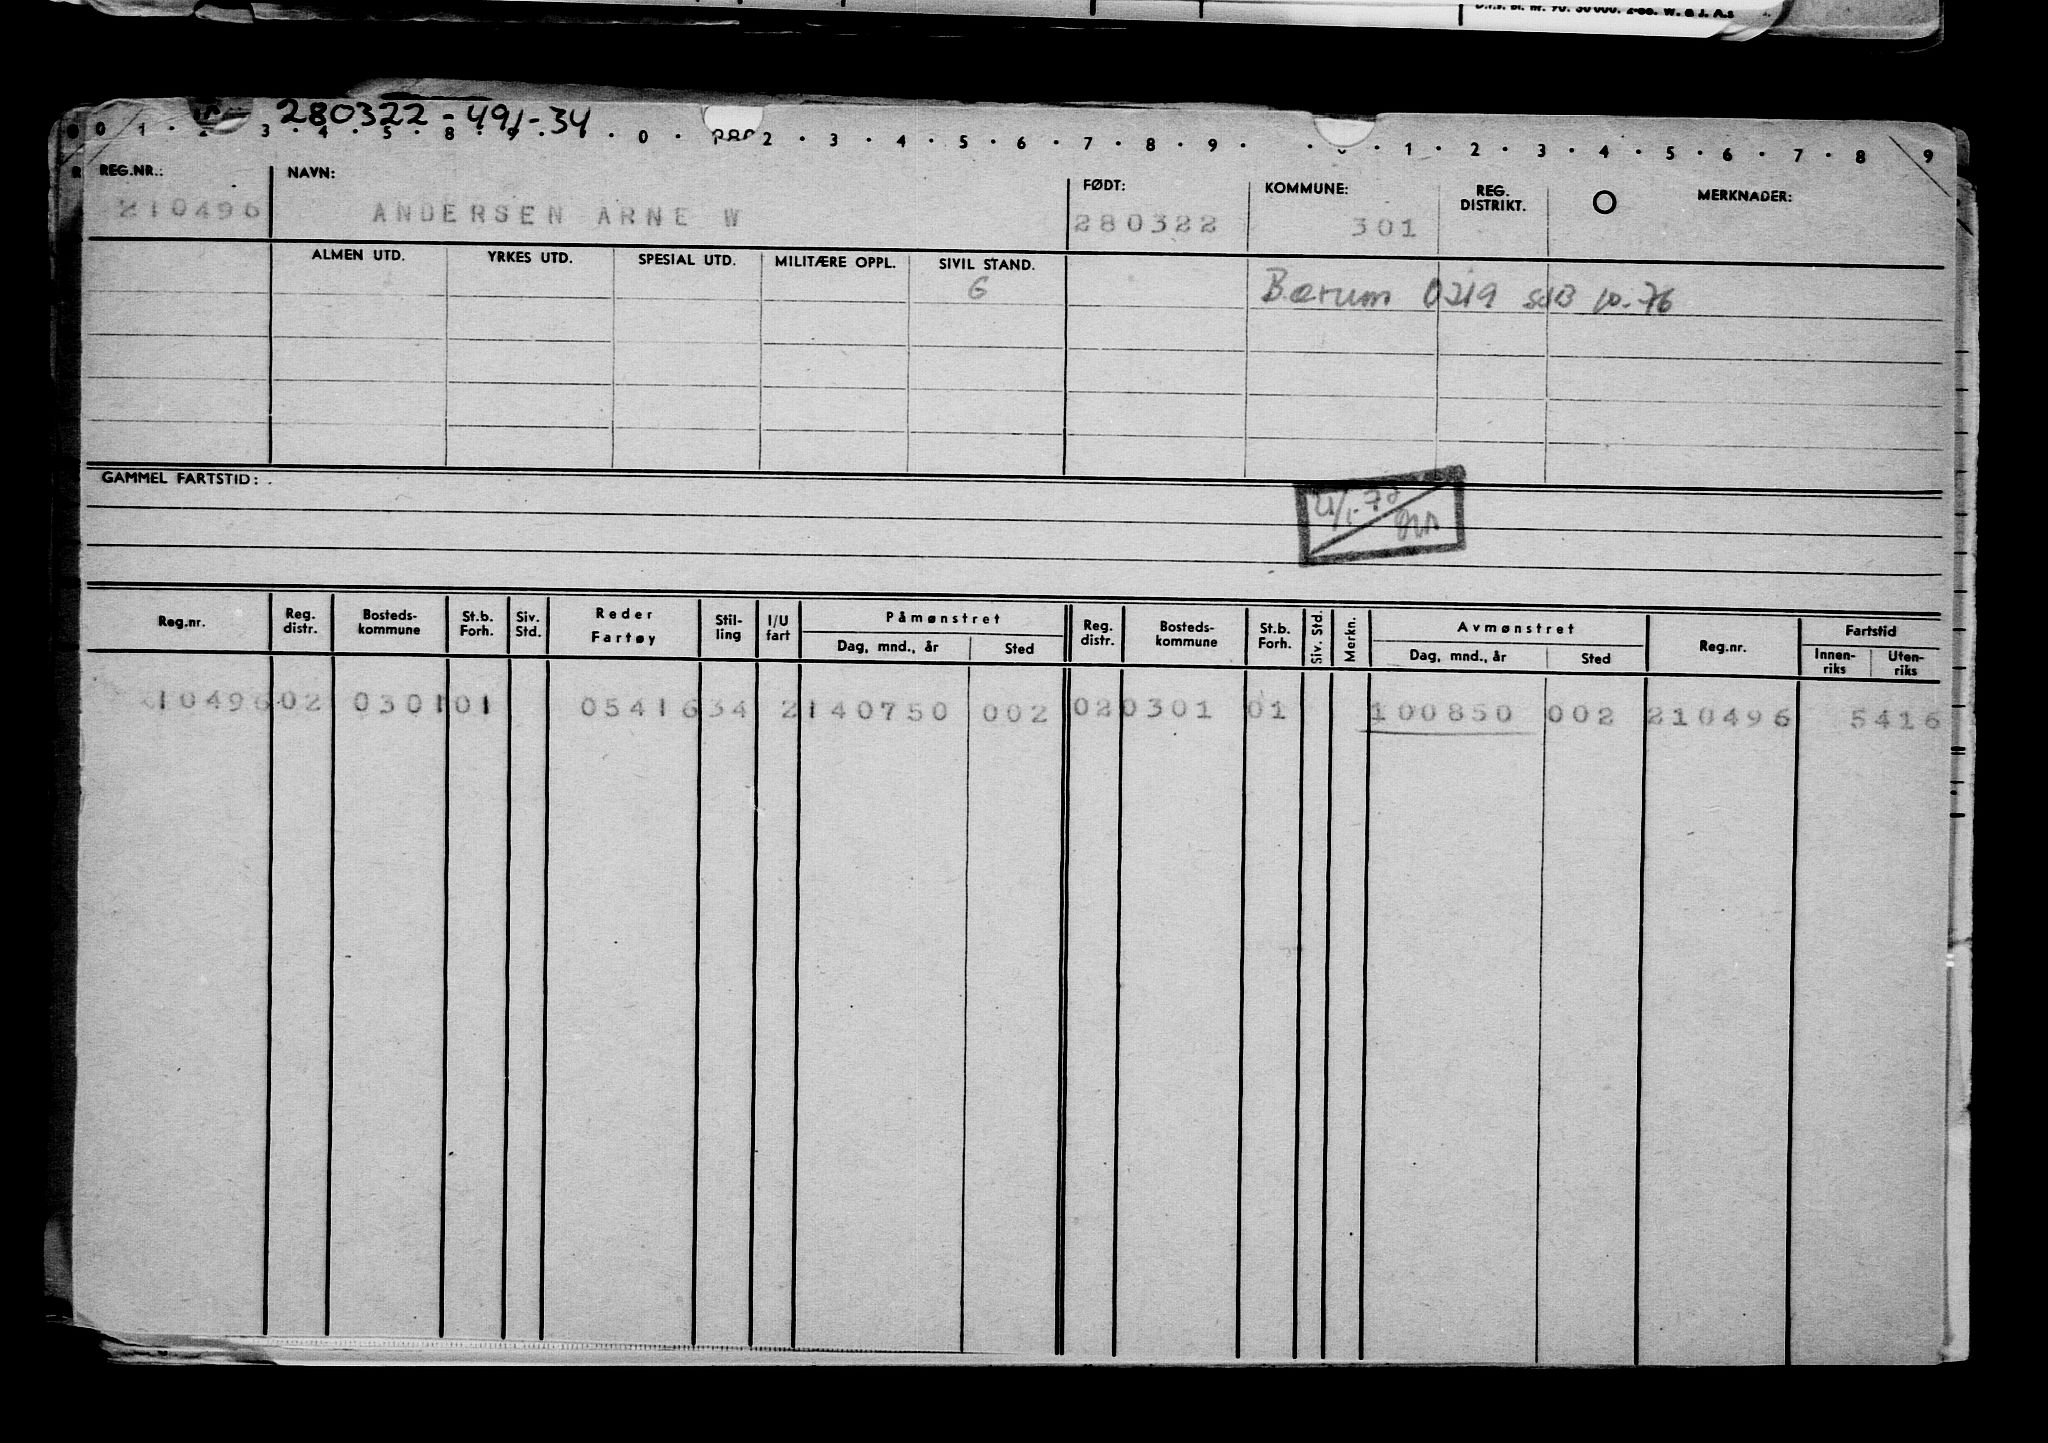 D.f.s. bl. nr. 90. 50 000. 2-66. W. & J. A.s
280322-491-34
0 1 . 2 3 . 4 . 5 . 8 . 9 . . 0 . 2 . 3 . 4 . 5 . 6 . 7 . 8 . 9 . . . 1 . 2 . 3 . 4 . 5 . 6 . 7 . 8 9
REG.NR.: NAVN: FØDT: KOMMUNE: REG. DISTRIKT. O MERKNADER:
210496 ANDERSEN ARNE W 280322 301
ALMEN UTD. YRKES UTD. SPESIAL UTD. MILITÆRE OPPL. SIVIL STAND.
G Bærum 0219 10.76
GAMMEL FARTSTID:
21/1-78
Reg.nr. Reg. distr. Bosteds-kommune St.b. Forh. Siv. Std. Reder Fartøy Stil-ling I/U fart Påmønstret Dag, mnd., år Sted Reg. distr. Bosteds-kommune St.b. Forh. Siv. Std. Merkn. Avmønstret Dag, mnd., år Sted Reg.nr. Fartstid Innen-riks Uten-riks
10496 02 0301 01 05416 34 2 140750 002 02 0301 01 100850 002 210496 5416